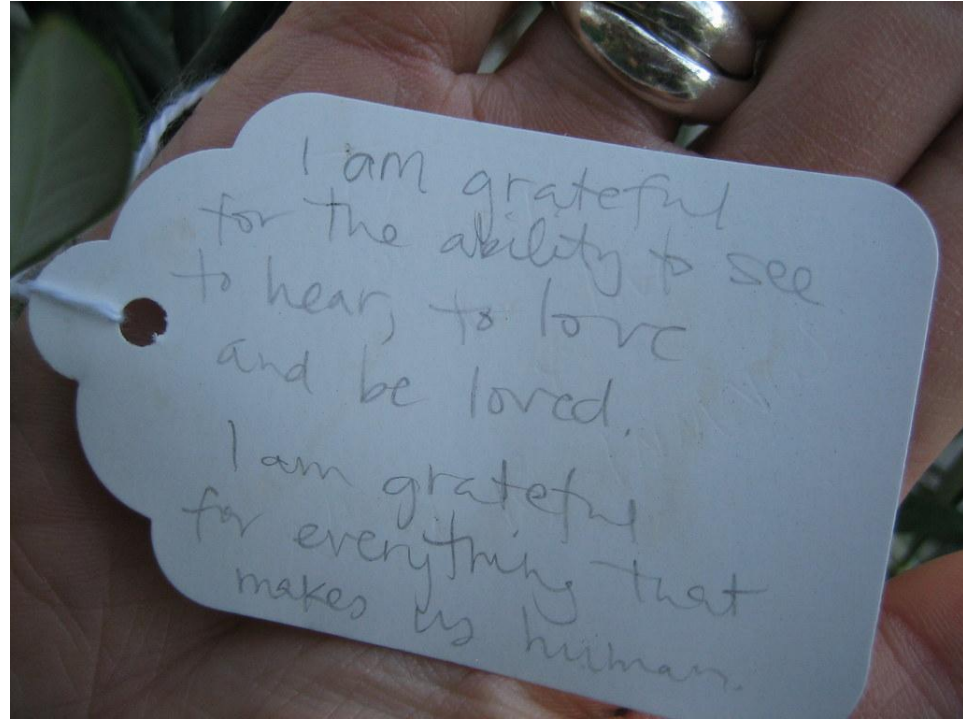 I am grateful
for the ability to see
to hear, to love
and be loved.
I am grateful
for everything that
makes us human.